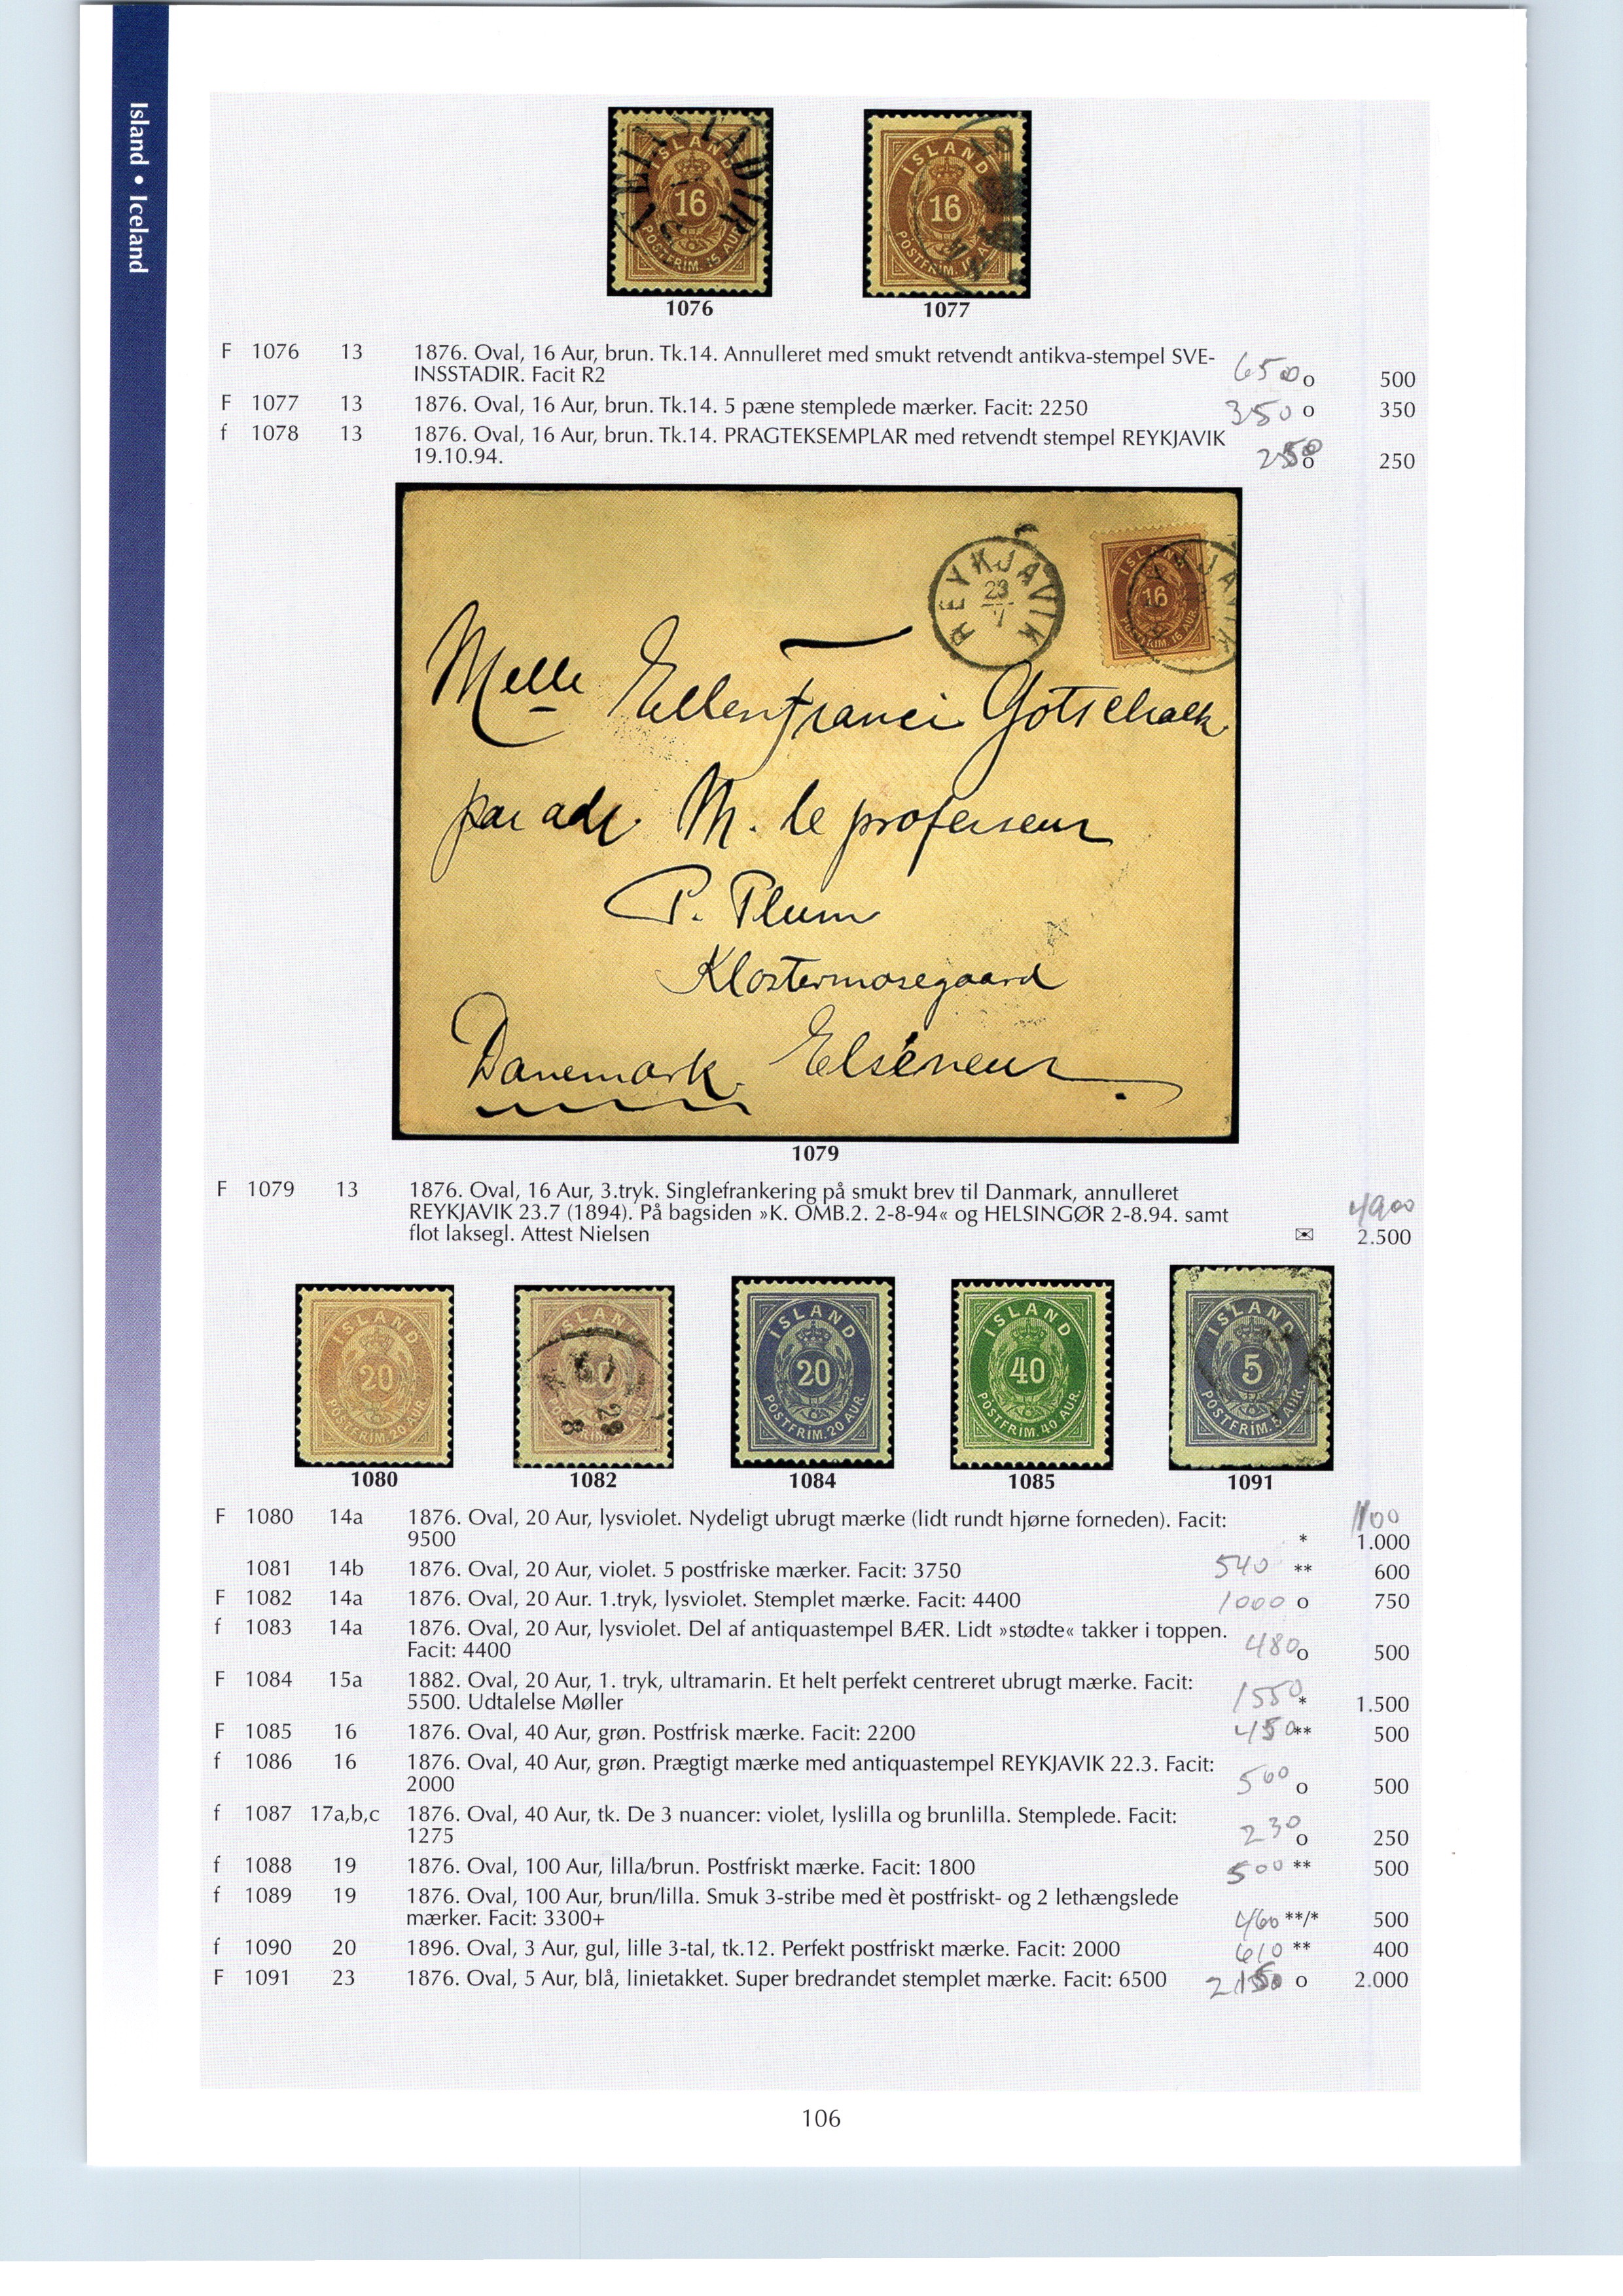 Island • Iceland
ISLAND
16
POSTFRIM. 16 AUR.
ISLAND
16
POSTFRIM. 16 AUR.
1076
1077
F 1076 13 1876. Oval, 16 Aur, brun. Tk.14. Annulleret med smukt retvendt antikva-stempel SVE-
INSSTADIR. Facit R2 6500 o 500
F 1077 13 1876. Oval, 16 Aur, brun. Tk.14. 5 pæne stemplede mærker. Facit: 2250 350 o 350
f 1078 13 1876. Oval, 16 Aur, brun. Tk.14. PRAGTEKSEMPLAR med retvendt stempel REYKJAVIK
19.10.94. 250 o 250
REYKJAVIK
23
7
ISLAND
16
POSTFRIM 16 AUR.
Melle Ellenfranci Gottschalk
par adr. M. le professeur
P. Plum
Klostermosegaard
Danemark. Elséneur
1079
F 1079 13 1876. Oval, 16 Aur, 3.tryk. Singlefrankering på smukt brev til Danmark, annulleret
REYKJAVIK 23.7 (1894). På bagsiden »K. OMB.2. 2-8-94« og HELSINGØR 2-8.94. samt 4900
flot laksegl. Attest Nielsen ✉ 2.500
ISLAND
20
POSTFRIM. 20 AUR.
ISLAND
ISLAND
20
POSTFRIM. 20 AUR.
ISLAND
40
POSTFRIM. 40 AUR.
ISLAND
5
POSTFRIM. 5 AUR.
1080
1082
1084
1085
1091
F 1080 14a 1876. Oval, 20 Aur, lysviolet. Nydeligt ubrugt mærke (lidt rundt hjørne forneden). Facit: 1100
9500 * 1.000
1081 14b 1876. Oval, 20 Aur, violet. 5 postfriske mærker. Facit: 3750 540 ** 600
F 1082 14a 1876. Oval, 20 Aur. 1.tryk, lysviolet. Stemplet mærke. Facit: 4400 1000 o 750
f 1083 14a 1876. Oval, 20 Aur, lysviolet. Del af antiquastempel BÆR. Lidt »stødte« takker i toppen.
Facit: 4400 480 o 500
F 1084 15a 1882. Oval, 20 Aur, 1. tryk, ultramarin. Et helt perfekt centreret ubrugt mærke. Facit:
5500. Udtalelse Møller 1550 * 1.500
F 1085 16 1876. Oval, 40 Aur, grøn. Postfrisk mærke. Facit: 2200 450 ** 500
f 1086 16 1876. Oval, 40 Aur, grøn. Prægtigt mærke med antiquastempel REYKJAVIK 22.3. Facit:
2000 500 o 500
f 1087 17a,b,c 1876. Oval, 40 Aur, tk. De 3 nuancer: violet, lyslilla og brunlilla. Stemplede. Facit:
1275 230 o 250
f 1088 19 1876. Oval, 100 Aur, lilla/brun. Postfriskt mærke. Facit: 1800 500 ** 500
f 1089 19 1876. Oval, 100 Aur, brun/lilla. Smuk 3-stribe med èt postfriskt- og 2 lethængslede
mærker. Facit: 3300+ 460 **/* 500
f 1090 20 1896. Oval, 3 Aur, gul, lille 3-tal, tk.12. Perfekt postfriskt mærke. Facit: 2000 610 ** 400
F 1091 23 1876. Oval, 5 Aur, blå, linietakket. Super bredrandet stemplet mærke. Facit: 6500 2150 o 2.000
106